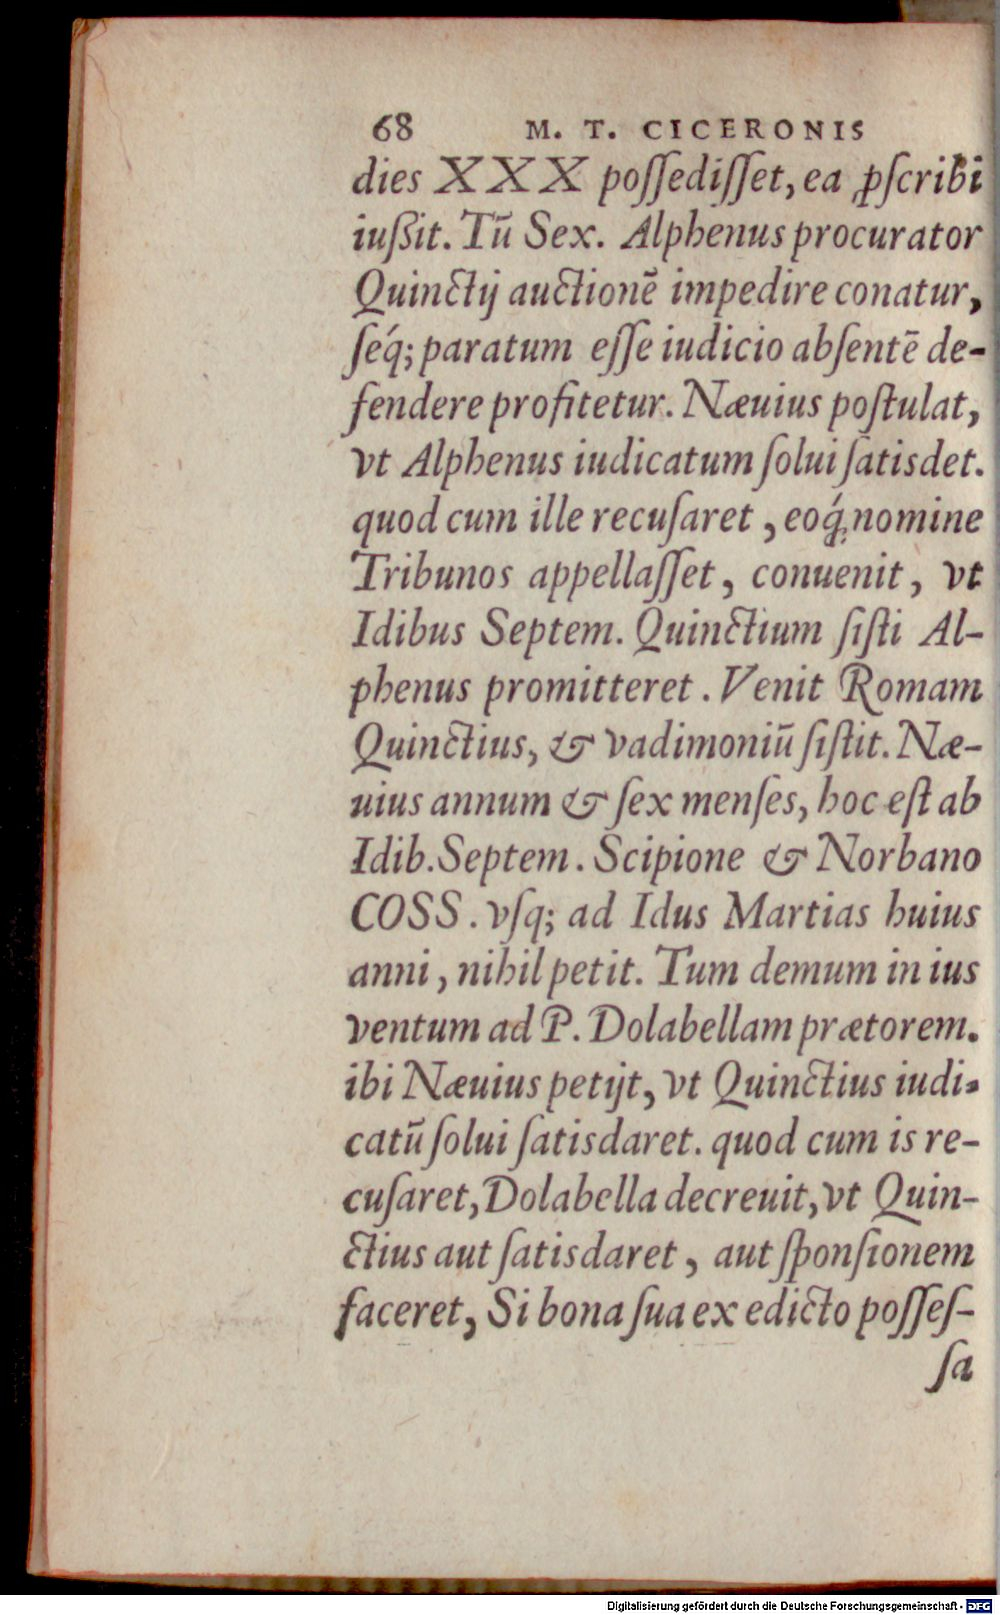 68 M. T. CICERONIS
dies XXX poſſediſſet, ea ꝓſcribi
iuſsit. Tū Sex. Alphenus procurator
Quinctij auctionē impedire conatur,
ſéq; paratum eſſe iudicio abſentē de-
fendere profitetur. Næuius poſtulat,
vt Alphenus iudicatum ſolui ſatisdet.
quod cum ille recuſaret, eoq́; nomine
Tribunos appellaſſet, conuenit, vt
Idibus Septem. Quinctium ſiſti Al-
phenus promitteret. Venit Romam
Quinctius, & vadimoniū ſiſtit. Næ-
uius annum & ſex menſes, hoc eſt ab
Idib. Septem. Scipione & Norbano
COSS. vſq; ad Idus Martias huius
anni, nihil petit. Tum demum in ius
ventum ad P. Dolabellam prætorem.
ibi Næuius petijt, vt Quinctius iudi-
catū ſolui ſatisdaret. quod cum is re-
cuſaret, Dolabella decreuit, vt Quin-
ctius aut ſatisdaret, aut ſponſionem
faceret, Si bona ſua ex edicto poſſeſ-
ſa
Digitalisierung gefördert durch die Deutsche Forschungsgemeinschaft - DFG